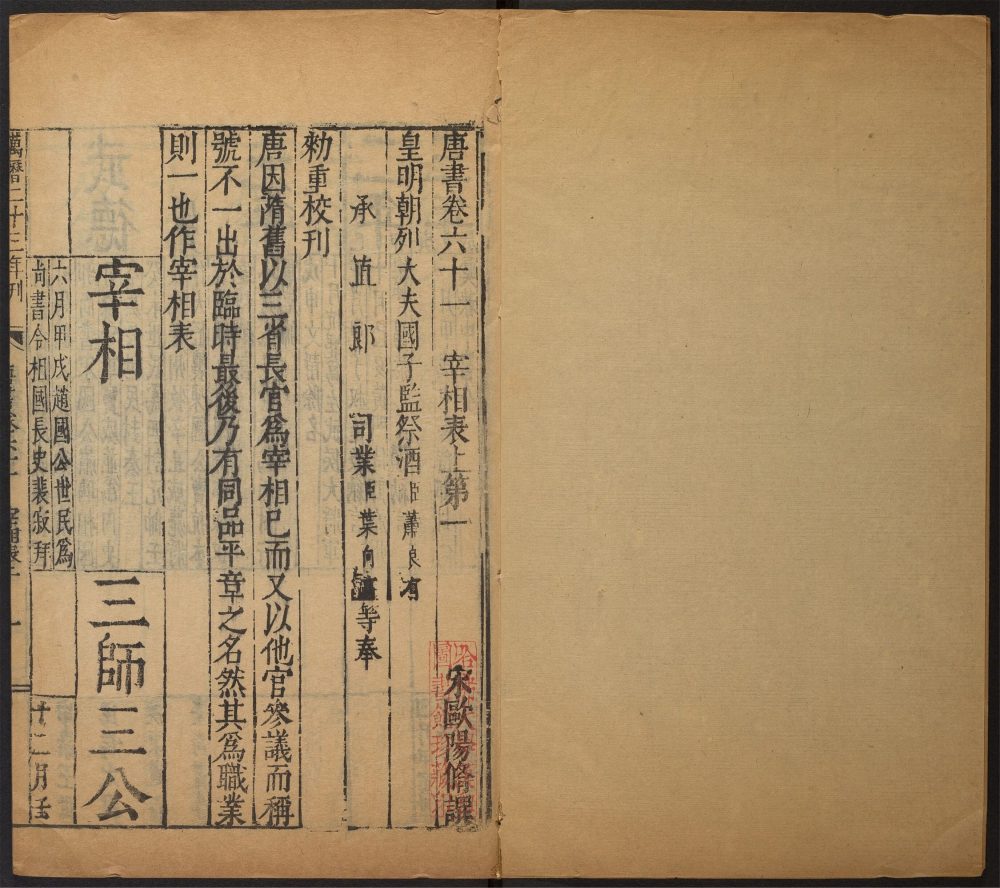 唐書卷六十一　宰相表上第一
宋歐陽脩譔
皇明朝列大夫國子監祭酒臣蕭良有
承直郎　司業臣葉向高等奉
勑重校刊
唐因隋舊以三省長官為宰相已而又以他官參議而稱
號不一出於臨時最後乃有同品平章之名然其為職業
則一也作宰相表
宰相　三師三公
六月甲戌趙國公世民為
尚書令相國長史裴寂拜
十二月壬
萬曆二十三年刊